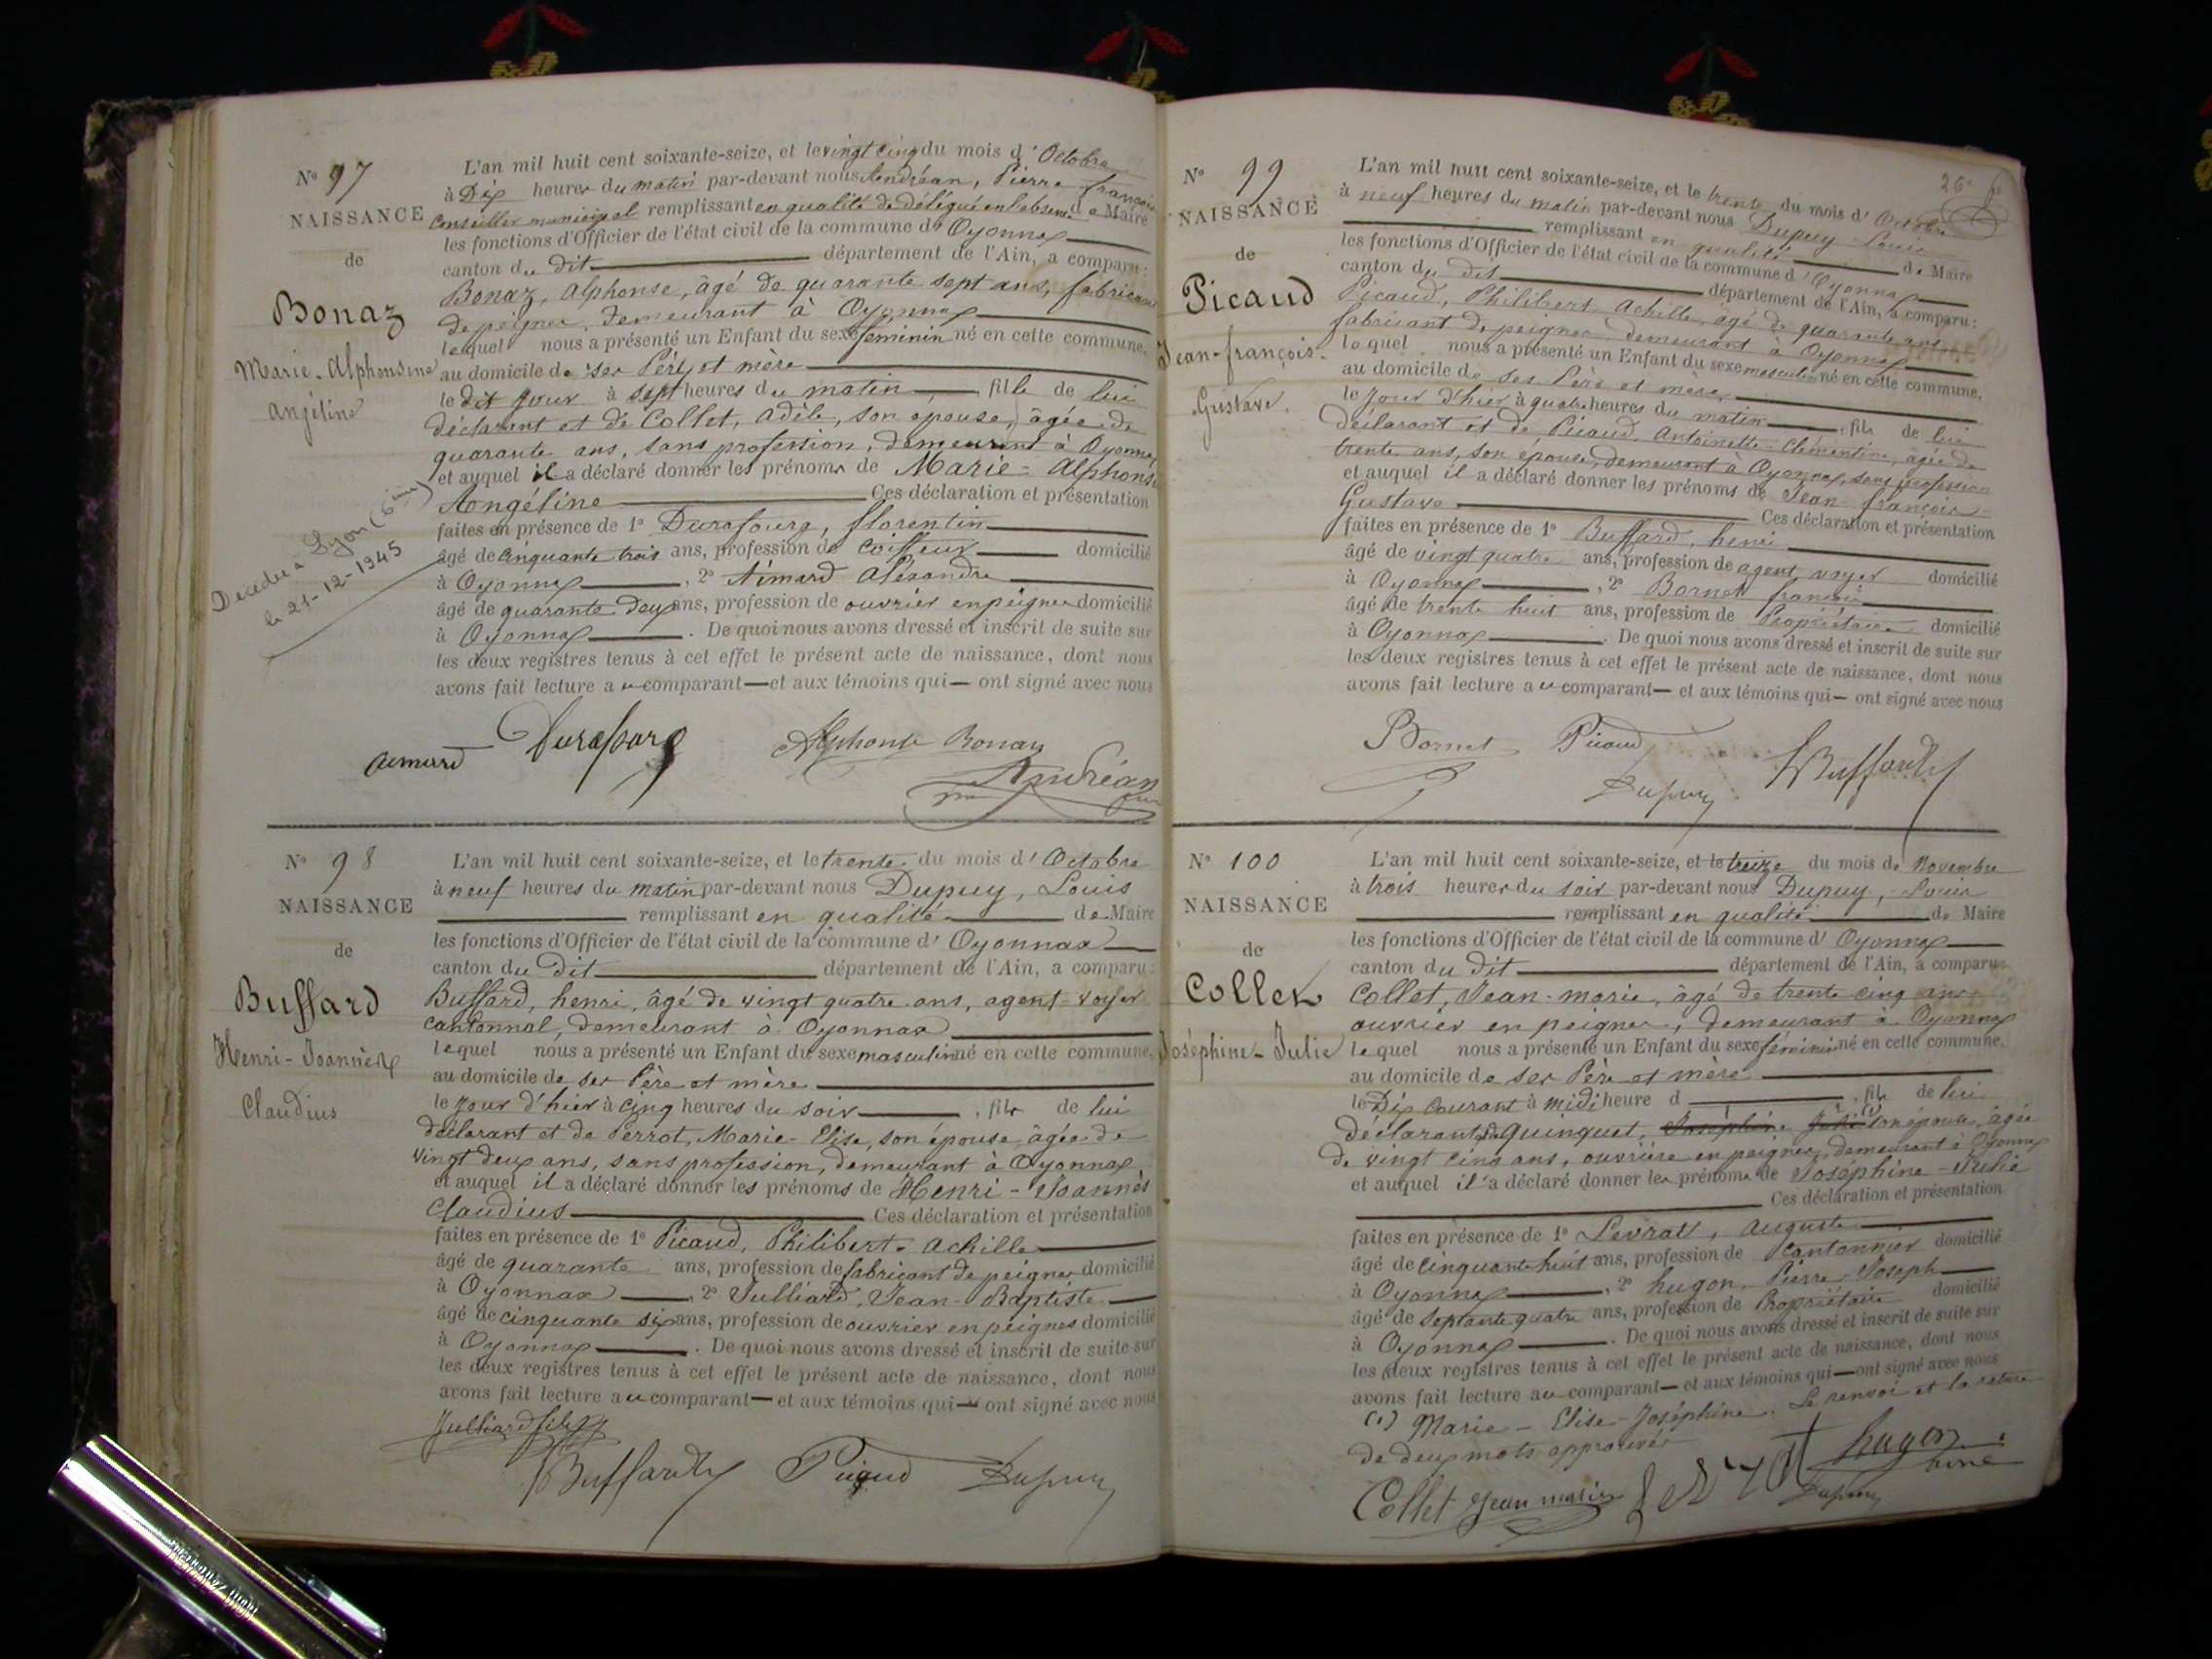 N° 97
NAISSANCE
de
Bonaz
Marie-Alphonsine
Angéline
Décédée à Lyon (6ème)
le 21-12-1945
L'an mil huit cent soixante-seize, et le vingt cinq du mois d'Octobre
à Dix heures du matin par-devant nous Andréan, Pierre françois
Conseiller municipal remplissant en qualité de délégué en l'absence de Maire
les fonctions d'Officier de l'état civil de la commune d'Oyonnax
canton du dit département de l'Ain, a comparu :
Bonaz, Alphonse, âgé de quarante sept ans, fabricant
de peignes, demeurant à Oyonnax
lequel nous a présenté un Enfant du sexe feminin né en cette commune,
au domicile de ses Père et mère
le dit jour à sept heures du matin, fille de lui
déclarant et de Collet, adèle, son épouse, âgée de
quarante ans, sans profession, demeurant à Oyonnax
et auquel il a déclaré donner les prénoms de Marie-Alphonsine
Angéline Ces déclaration et présentation
faites en présence de 1° Durafourg, florentin
âgé de cinquante trois ans, profession de coiffeur domicilié
à Oyonnax, 2° Aimard Aléxandre
âgé de quarante deux ans, profession de ouvrier en peignes domicilié
à Oyonnax. De quoi nous avons dressé et inscrit de suite sur
les deux registres tenus à cet effet le présent acte de naissance, dont nous
avons fait lecture au comparant et aux témoins qui ont signé avec nous
aimard Durafourg Alphonse Bonaz
Andréan
N° 98
NAISSANCE
de
Buffard
Henri-Joannès
Claudius
L'an mil huit cent soixante-seize, et le trente du mois d'Octobre
à neuf heures du matin par-devant nous Dupuy, Louis
remplissant en qualité de Maire
les fonctions d'Officier de l'état civil de la commune d'Oyonnax
canton du Dit département de l'Ain, a comparu :
Buffard, henri, âgé de vingt quatre ans, agent-voyer
cantonnal, demeurant à Oyonnax
lequel nous a présenté un Enfant du sexe masculin né en cette commune,
au domicile de ses Père et mère
le jour d'hier à cinq heures du soir, fils de lui
déclarant et de Perrot, Marie-Elise, son épouse, âgée de
vingt deux ans, sans profession, demeurant à Oyonnax,
et auquel il a déclaré donner les prénoms de Henri-Joannès
Claudius Ces déclaration et présentation
faites en présence de 1° Picaud, Philibert-achille
âgé de quarante ans, profession de fabricant de peignes domicilié
à Oyonnax, 2° Julliard, Jean-Baptiste
âgé de cinquante six ans, profession de ouvrier en peignes domicilié
à Oyonnax. De quoi nous avons dressé et inscrit de suite sur
les deux registres tenus à cet effet le présent acte de naissance, dont nous
avons fait lecture au comparant et aux témoins qui ont signé avec nous
Julliard
Buffard Picaud Dupuy
26
N° 99
NAISSANCE
de
Picaud
Jean-françois
Gustave.
L'an mil huit cent soixante-seize, et le trente du mois d'Octobre
à neuf heures du matin par-devant nous Dupuy Louis
remplissant en qualité de Maire
les fonctions d'Officier de l'état civil de la commune d'Oyonnax
canton du dit département de l'Ain, a comparu :
Picaud, Philibert Achille, âgé de quarante ans
fabricant de peignes demeurant à Oyonnax
lequel nous a présenté un Enfant du sexe masculin né en cette commune,
au domicile de ses Père et mère
le jour d'hier à quatre heures du matin, fils de lui
déclarant et de Picaud, Antoinette-Clémentine, âgée de
trente ans, son épouse, demeurant à Oyonnax, sans profession
et auquel il a déclaré donner les prénoms de Jean-françois-
Gustave Ces déclaration et présentation
faites en présence de 1° Buffard, henri
âgé de vingt quatre ans, profession de agent voyer domicilié
à Oyonnax, 2° Bornet françois
âgé de trente huit ans, profession de Propriétaire domicilié
à Oyonnax. De quoi nous avons dressé et inscrit de suite sur
les deux registres tenus à cet effet le présent acte de naissance, dont nous
avons fait lecture au comparant et aux témoins qui ont signé avec nous
Bornet Picaud
Dupuy HBuffard
N° 100
NAISSANCE
de
Collet
Joséphine-Julie
L'an mil huit cent soixante-seize, et le treize du mois de Novembre
à trois heures du soir par-devant nous Dupuy, Louis
remplissant en qualité de Maire
les fonctions d'Officier de l'état civil de la commune d'Oyonnax
canton du Dit département de l'Ain, a comparu
Collet, Jean-marie, âgé de trente cinq ans
ouvrier en peignes, demeurant à Oyonnax
lequel nous a présenté un Enfant du sexe féminin né en cette commune,
au domicile de ses Père et mère
le Dix courant à midi heure d, fille de lui
déclarant et de Quinquet, Joséphine Julie son épouse, âgée
de vingt cinq ans, ouvrière en peignes, demeurant à Oyonnax
et auquel il a déclaré donner les prénoms de Joséphine-Julie
Ces déclaration et présentation
faites en présence de 1° Levrat, auguste
âgé de cinquante huit ans, profession de Cantonnier domicilié
à Oyonnax, 2° hugon, Pierre-Joseph
âgé de septante quatre ans, profession de Propriétaire domicilié
à Oyonnax. De quoi nous avons dressé et inscrit de suite sur
les deux registres tenus à cet effet le présent acte de naissance, dont nous
avons fait lecture au comparant et aux témoins qui ont signé avec nous
(1) Marie-Elise-Joséphine. Le renvoi et la rature
de deux mots approuvés
Collet Jean marie hugon
Dupuy